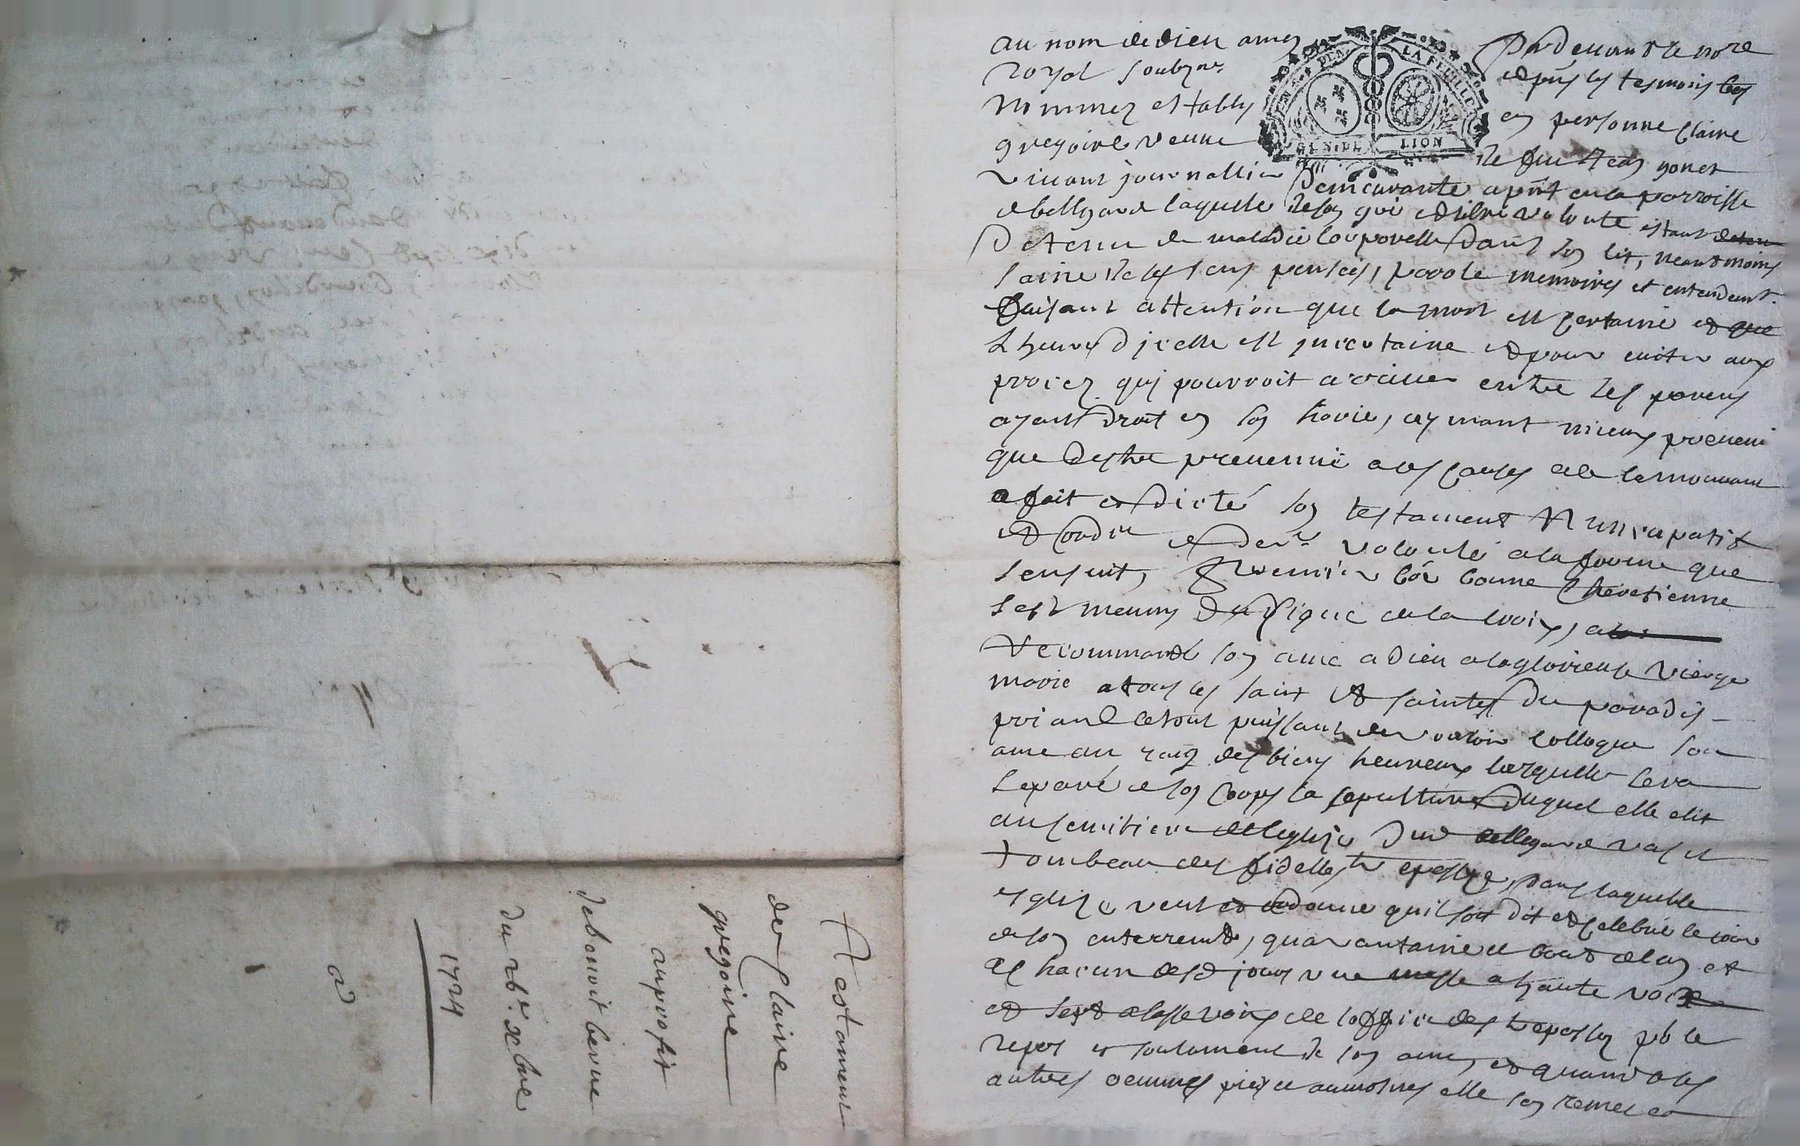 au nom de dieu amen
Pardevant le no.re
royal soubz.né
et pnts les tesmoins bas
nommez establi
en personne Claire
gregoire veuve
de feu Jean gonet
vivant journallier
demeurante a pnt en la parroisse
de bellegarde laquelle de son gré et libre volonté estant
Detenu de maladie corporelle Dans son lit, neantmoins
saine de ses sens pensées, parole memoires et entendemt.
Faisant attention que la mort est certaine et que
L'heure d'jcelle est jncertaine et pour eviter aux
procez qui pourroit arriver entre les parens
ayant Droit en son hoirie, aymant mieux prevenir
que destre prevenue a ces causes
a fait et Dicté son testament Nuncupatif
et ordre et dere volonté a la forme que
sensuit, Premier côe bonne Chretienne
sest munis du signe de la croix, a
Recommandé son ame a Dieu a la glorieuse vierge
marie a tous les saint et saintes Du paradis
priant le tout puissant de vouloir colloquer son
ame au rang des bien heureux lorsquelle sera
Separé de son Corps la sepulture Duquel elle elit
au cemitiere de leglize Dud bellegarde vas et
tombeau des fidelles trepassez, Dans laquelle
eglize veut et ordonne quil soit Dit et Celebré le jour
de son enterremt, quarantaine et bout de lan et
a chacun desd jours une messe a haute voix
et sept a basse voix de loffice des trepassez pr le
repos et soulament de son ame, et quand a les
autres oeuvres pies et aumosnes elle sen remet a
Testament
de Claire
gregoire
au profit
de benoit berne
du xbre
1724